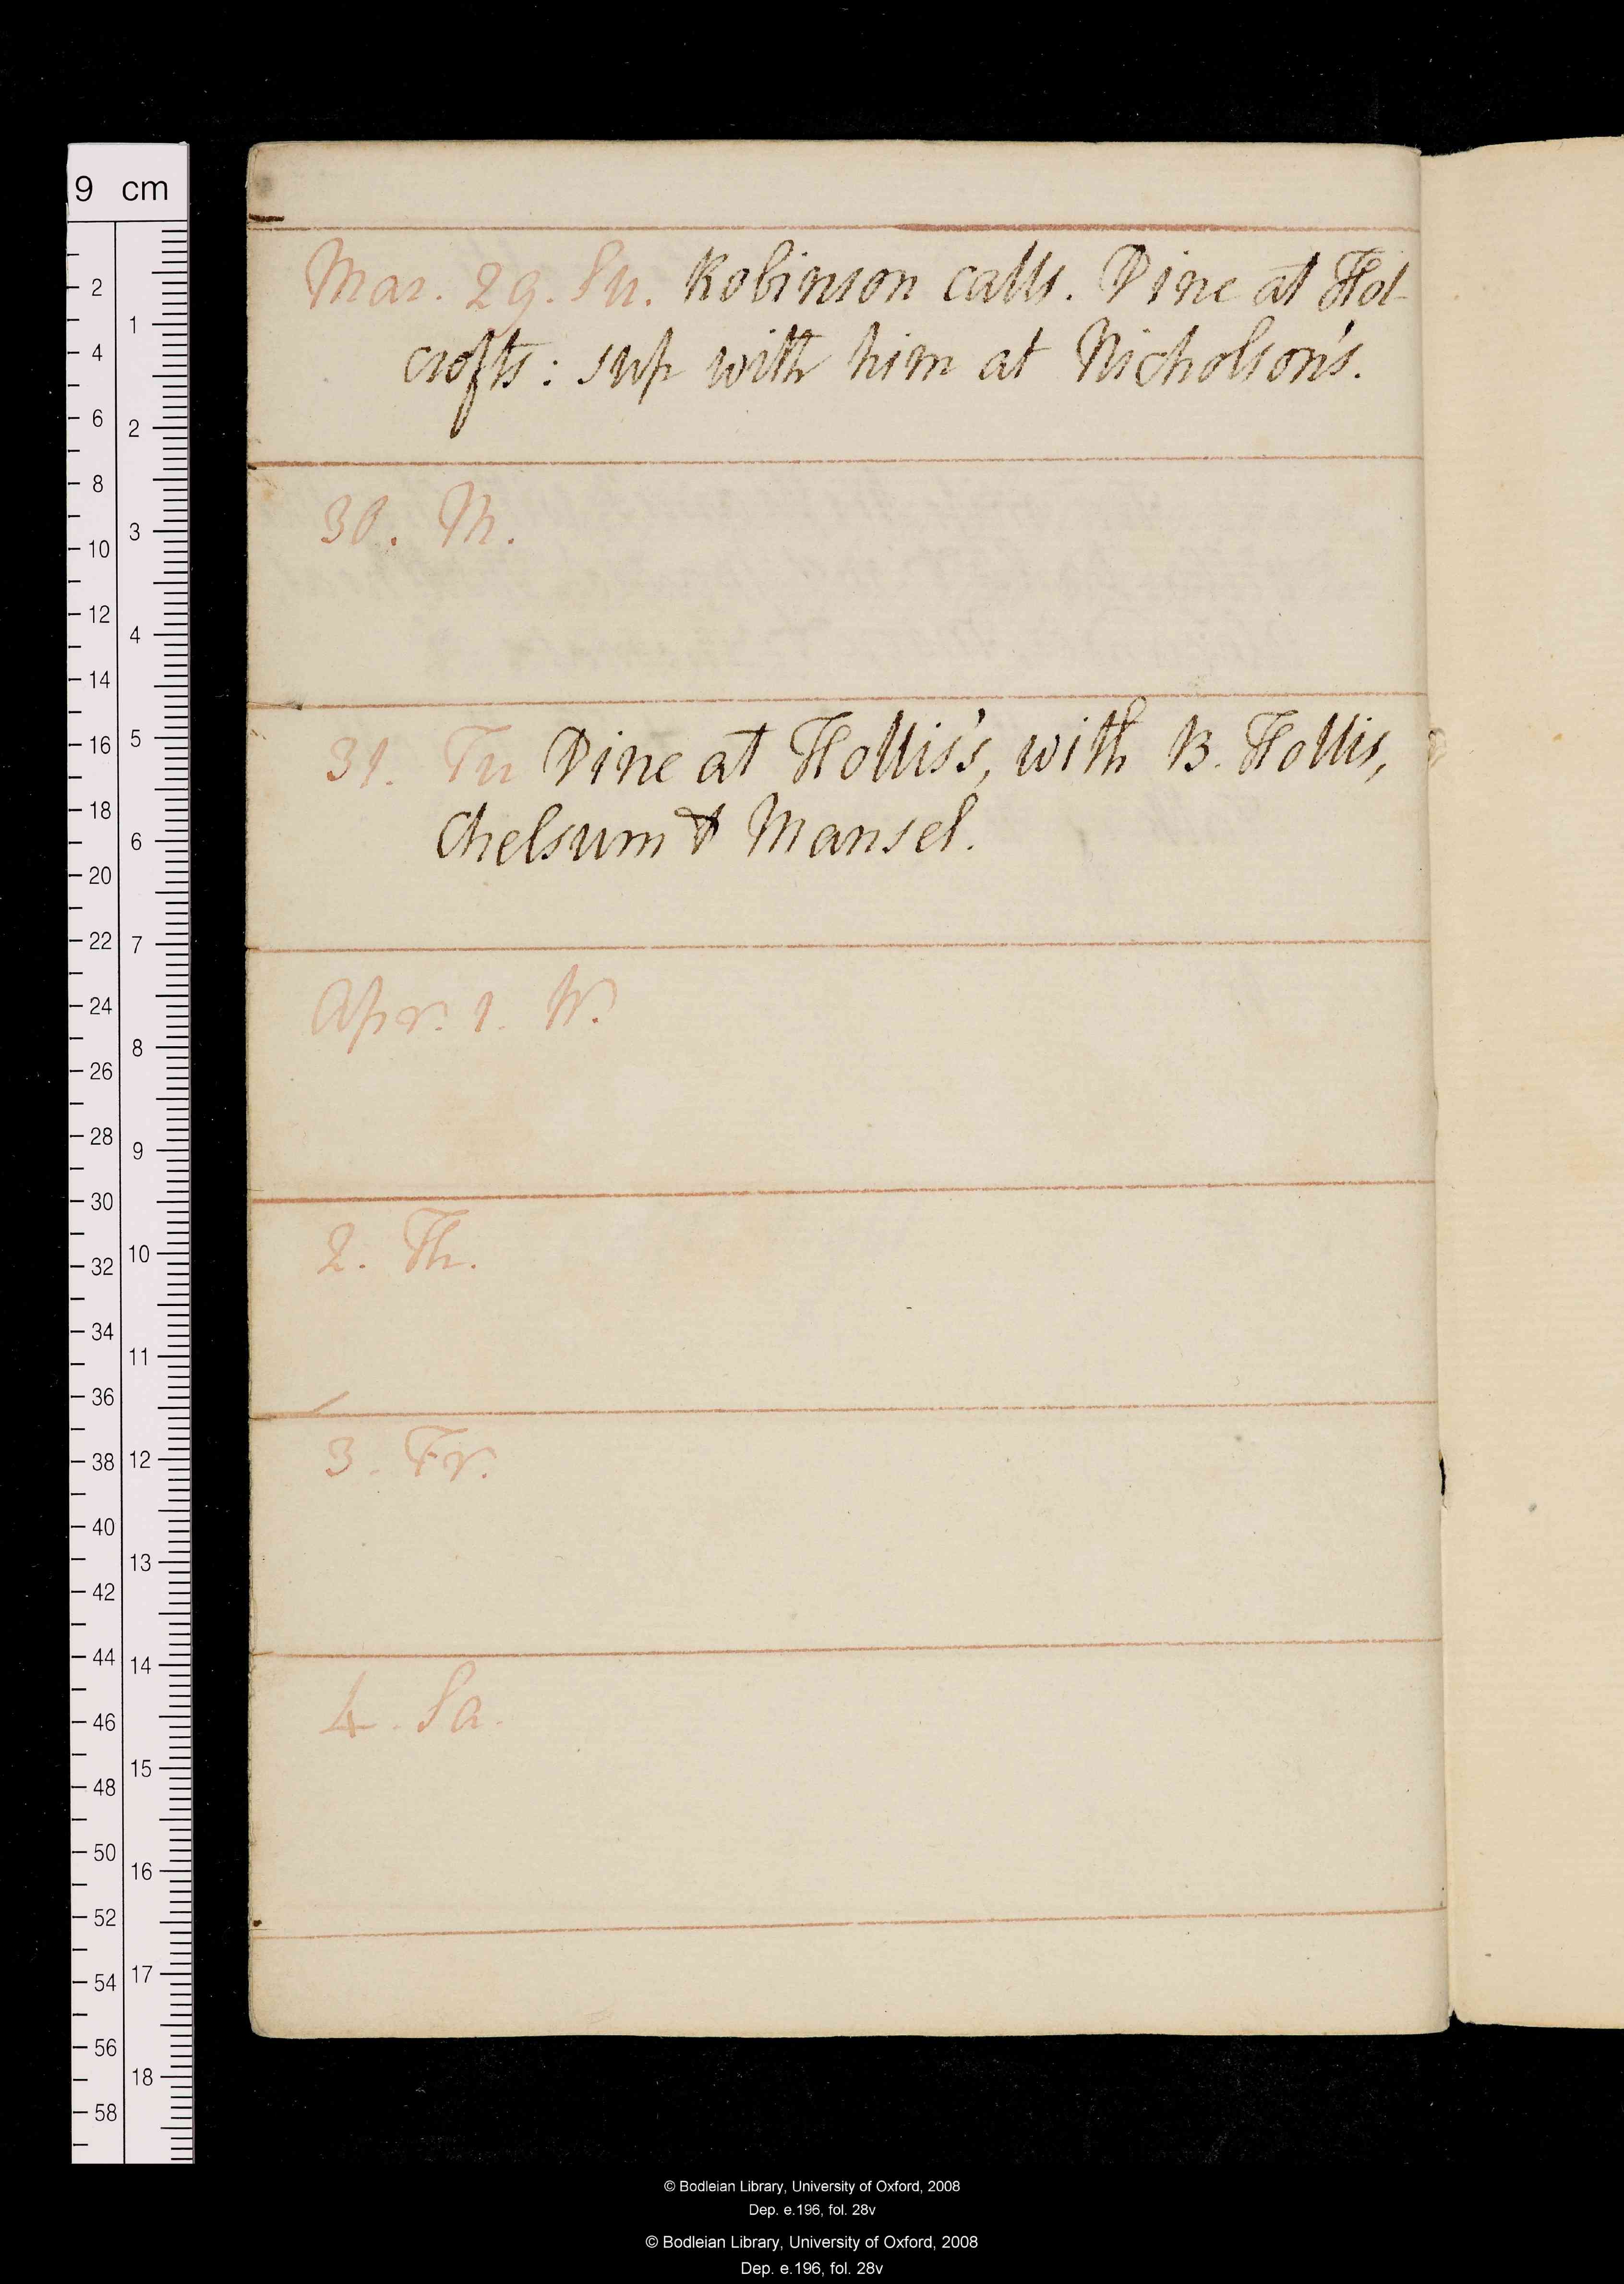 Mar. 29. Su. Robinson calls. Dine at Hol-
crofts: sup with him at Nicholson's.
30. M.
31. Tu Dine at Hollis's, with B. Hollis,
Chelsum & Mansel.
Apr. 1. W.
2. Th.
3. Fr.
4. Sa.
9 cm
2
4
6
8
10
12
14
16
18
20
22
24
26
28
30
32
34
36
38
40
42
44
46
48
50
52
54
56
58
1
2
3
4
5
6
7
8
9
10
11
12
13
14
15
16
17
18
© Bodleian Library, University of Oxford, 2008
Dep. e.196, fol. 28v
© Bodleian Library, University of Oxford, 2008
Dep. e.196, fol. 28v